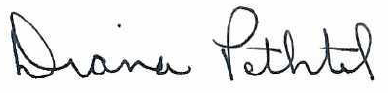 Diana Pethtel